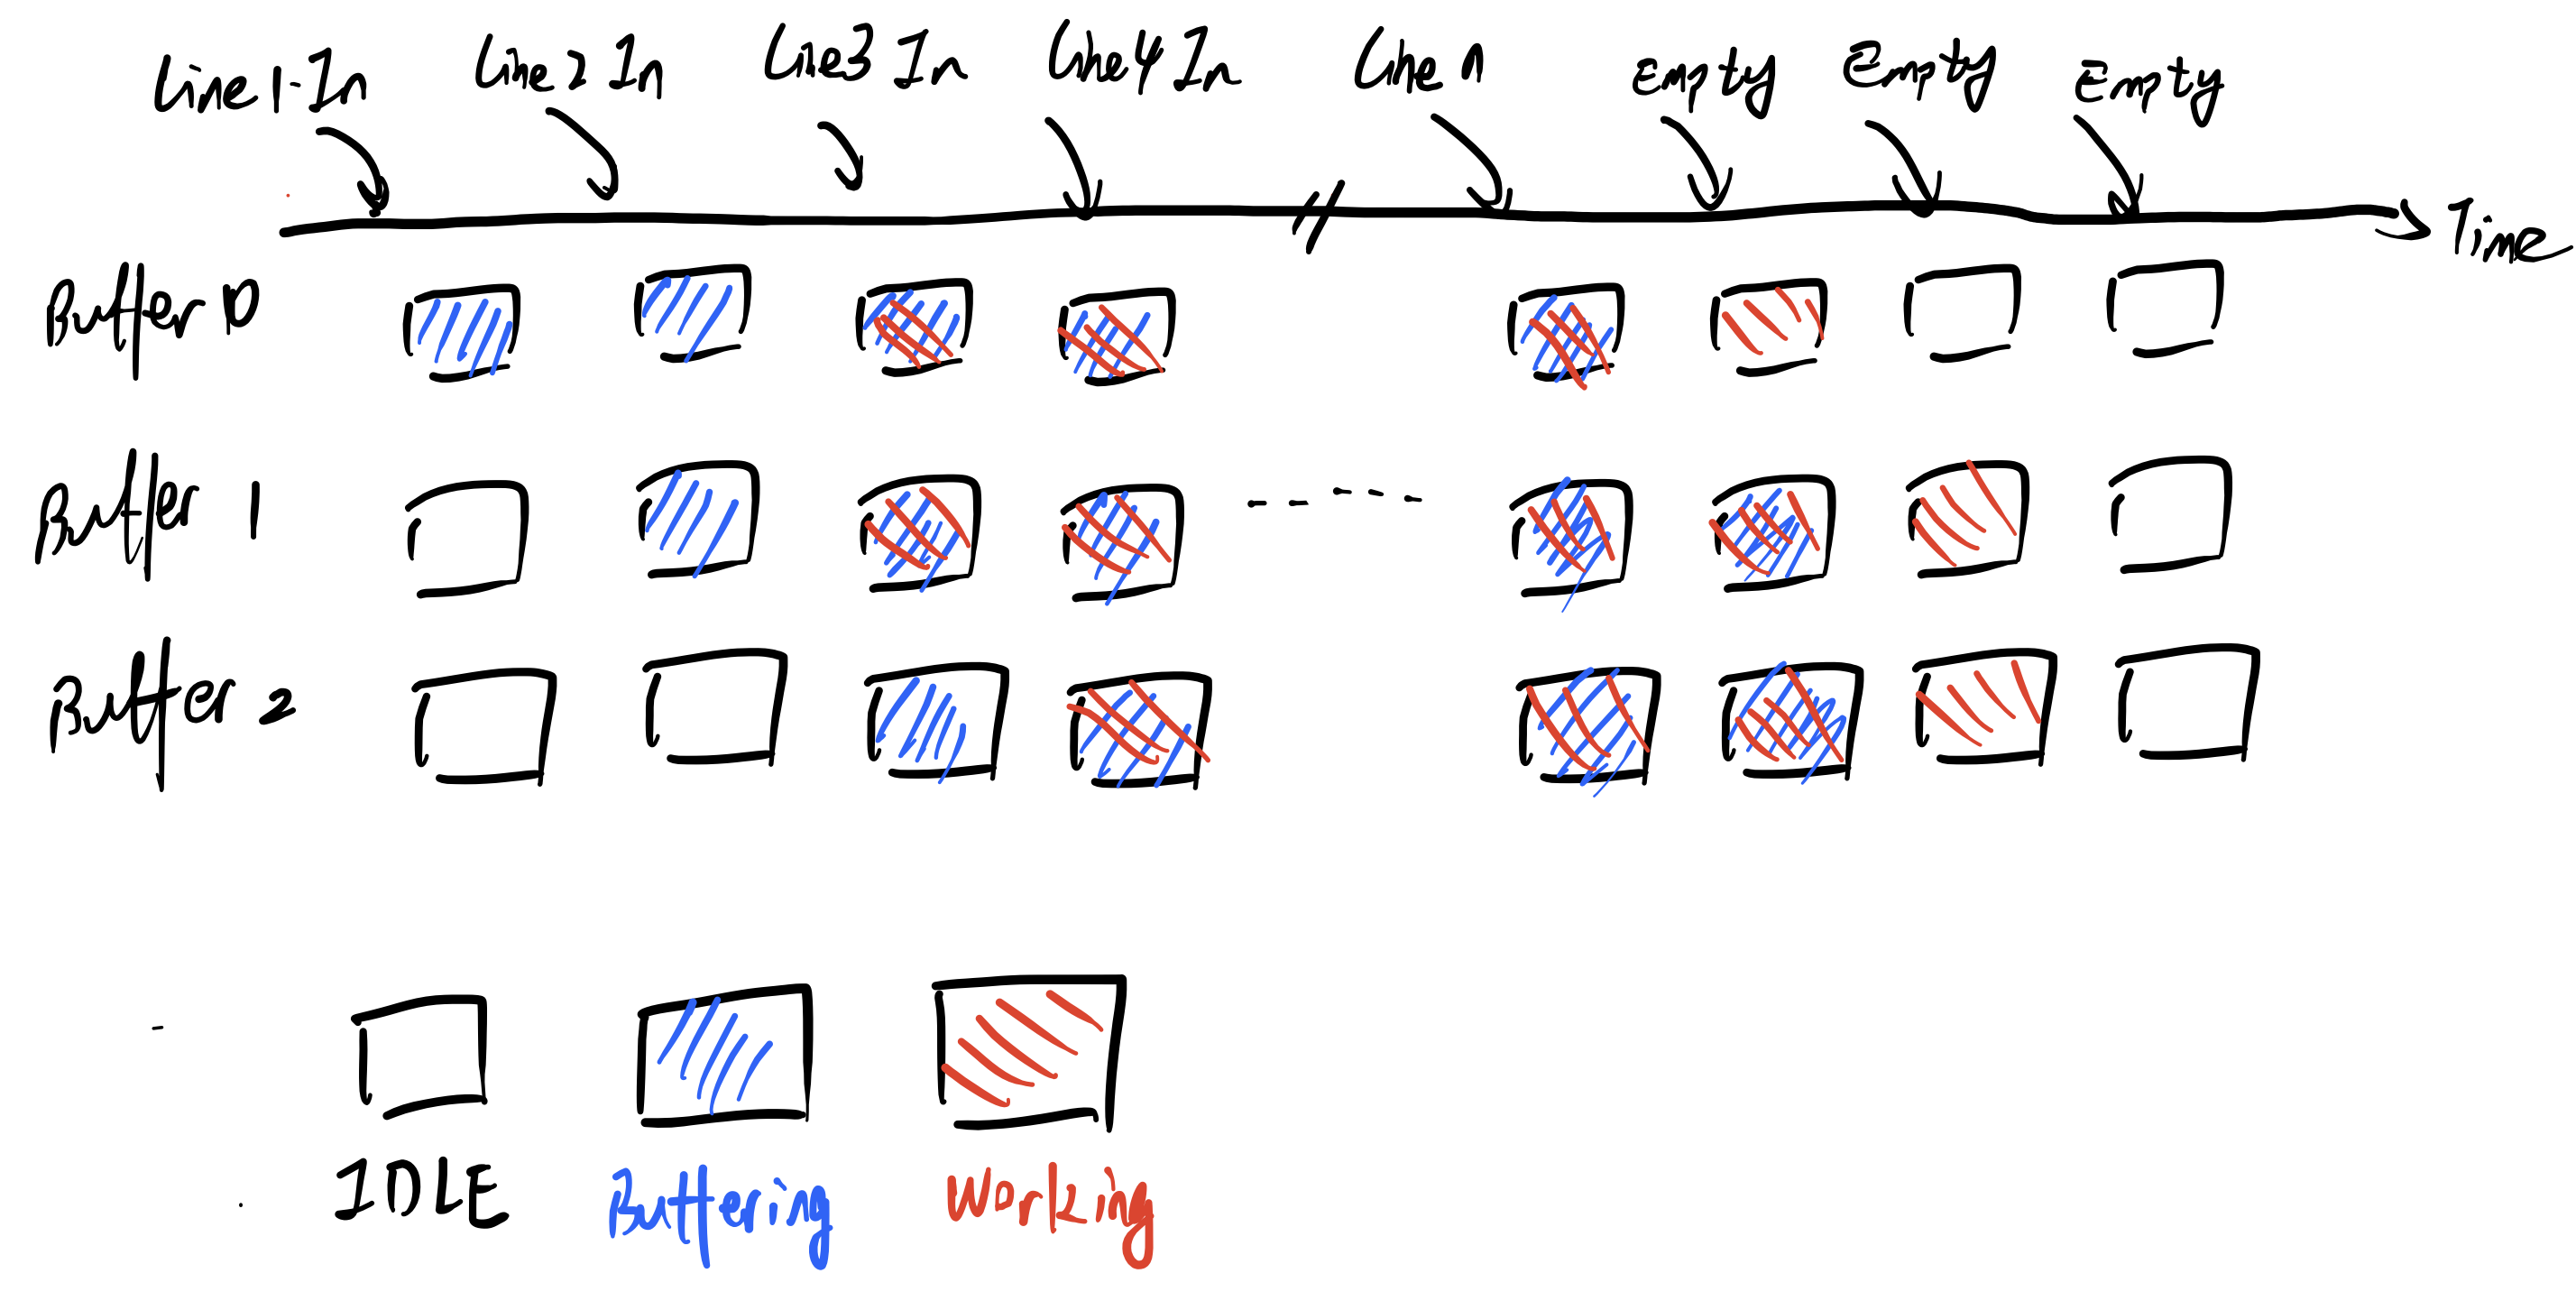 Line 1-In Line 2 In Line3 In Line4 In Line n Empty Empty Empty
Time
Buffer 0
Buffer 1
Buffer 2
IDLE Buffering Working